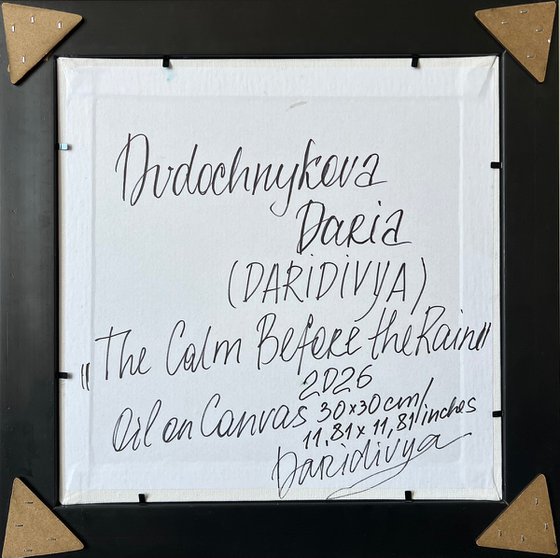 Dudochnykova
Daria
(DARIDIVYA)
"The Calm Before the Rain"
2026
Oil on Canvas 30x30 cm/
11,81 x 11,81 inches
Daridivya